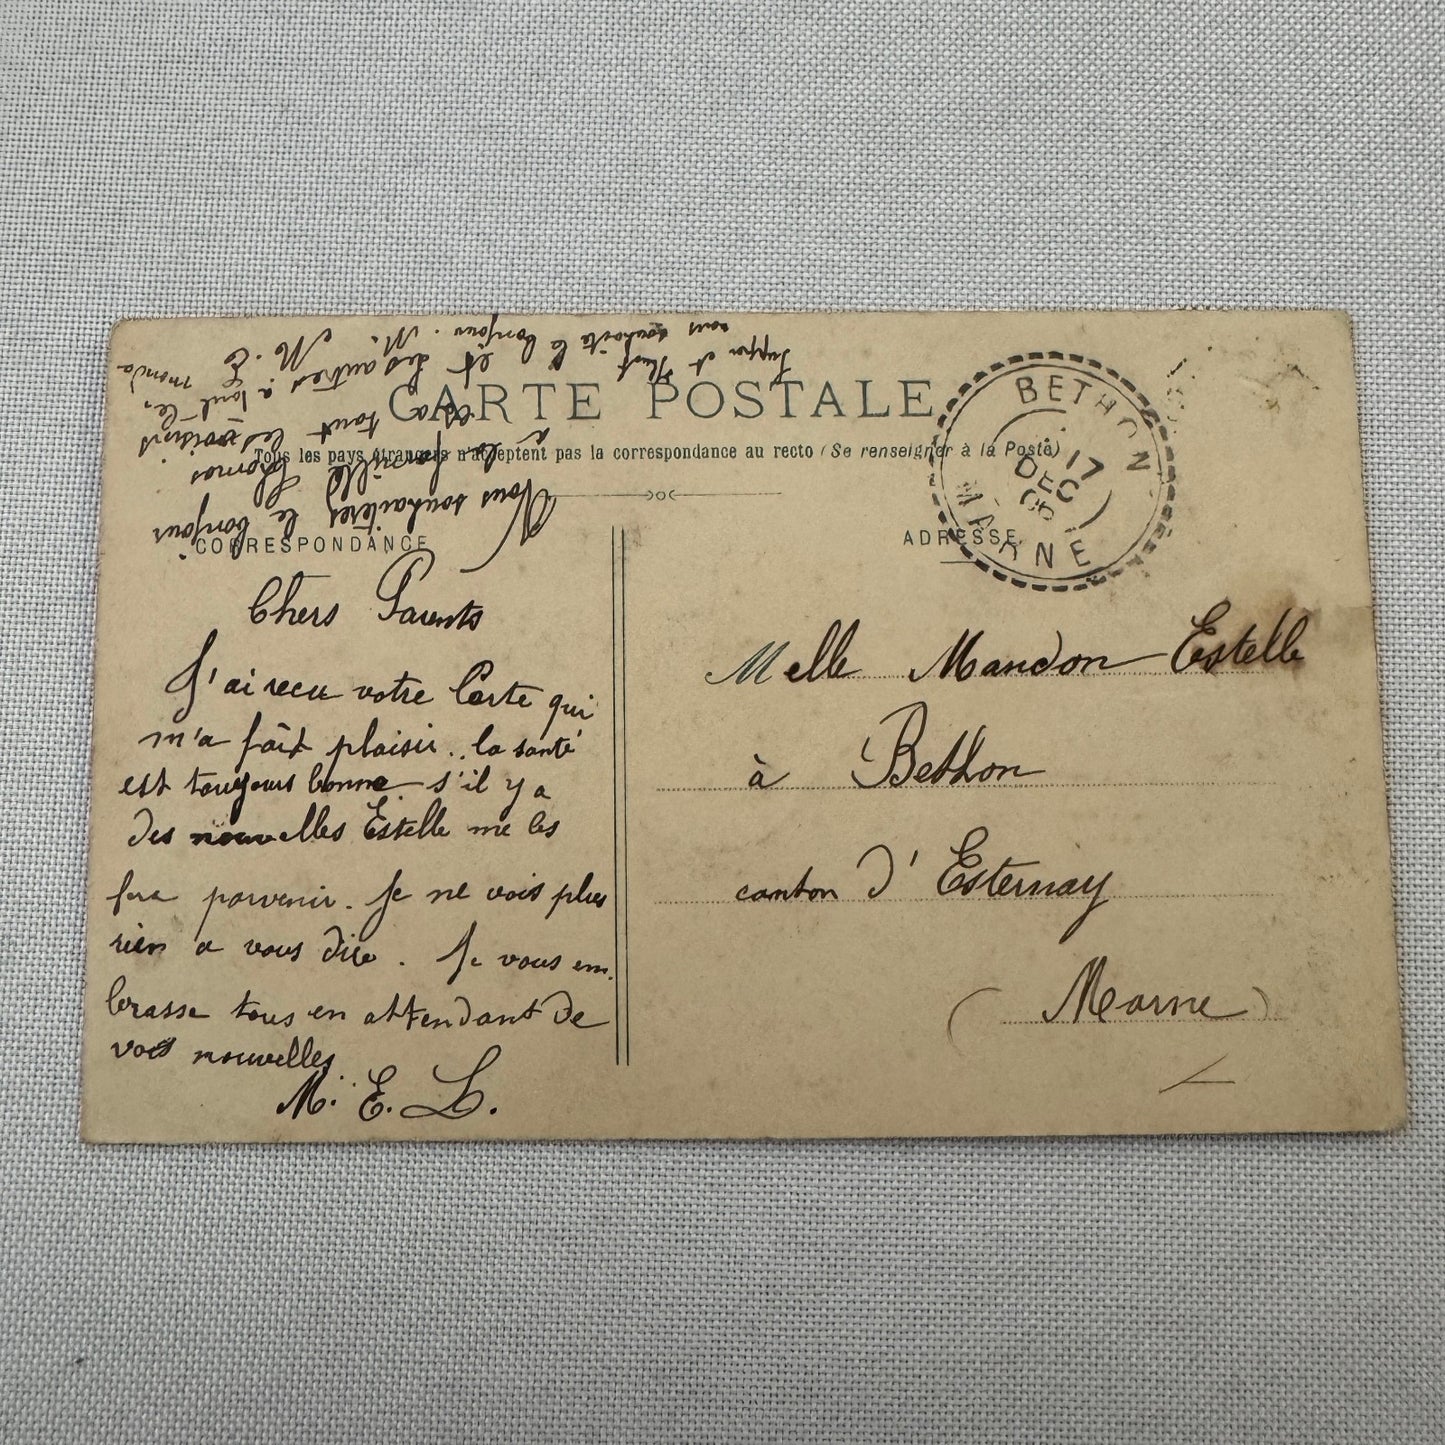 CARTE POSTALE
Tous les pays étrangers n'acceptent pas la correspondance au recto (Se renseigner à la Poste)
CORRESPONDANCE
Chers Parents
J'ai recu votre Carte qui
m'a fait plaisir.. la santé
est toujours bonne s'il y a
des nouvelles Estelle me les
fera parvenir. Je ne vois plus
rien a vous dire. Je vous em.
brasse tous en attendant de
vos nouvelles
M. E. L.
Vous souhaiterez le bonjour
à la famille Thomas
et a tout les voisins
et les autres a tout le monde
M. E
vous souhaite le bonjour. M.
ADRESSE
Melle Mandon Estelle
à Bethon
canton d'Esternay
(Marne)
BETHON
17
DEC
05
MARNE